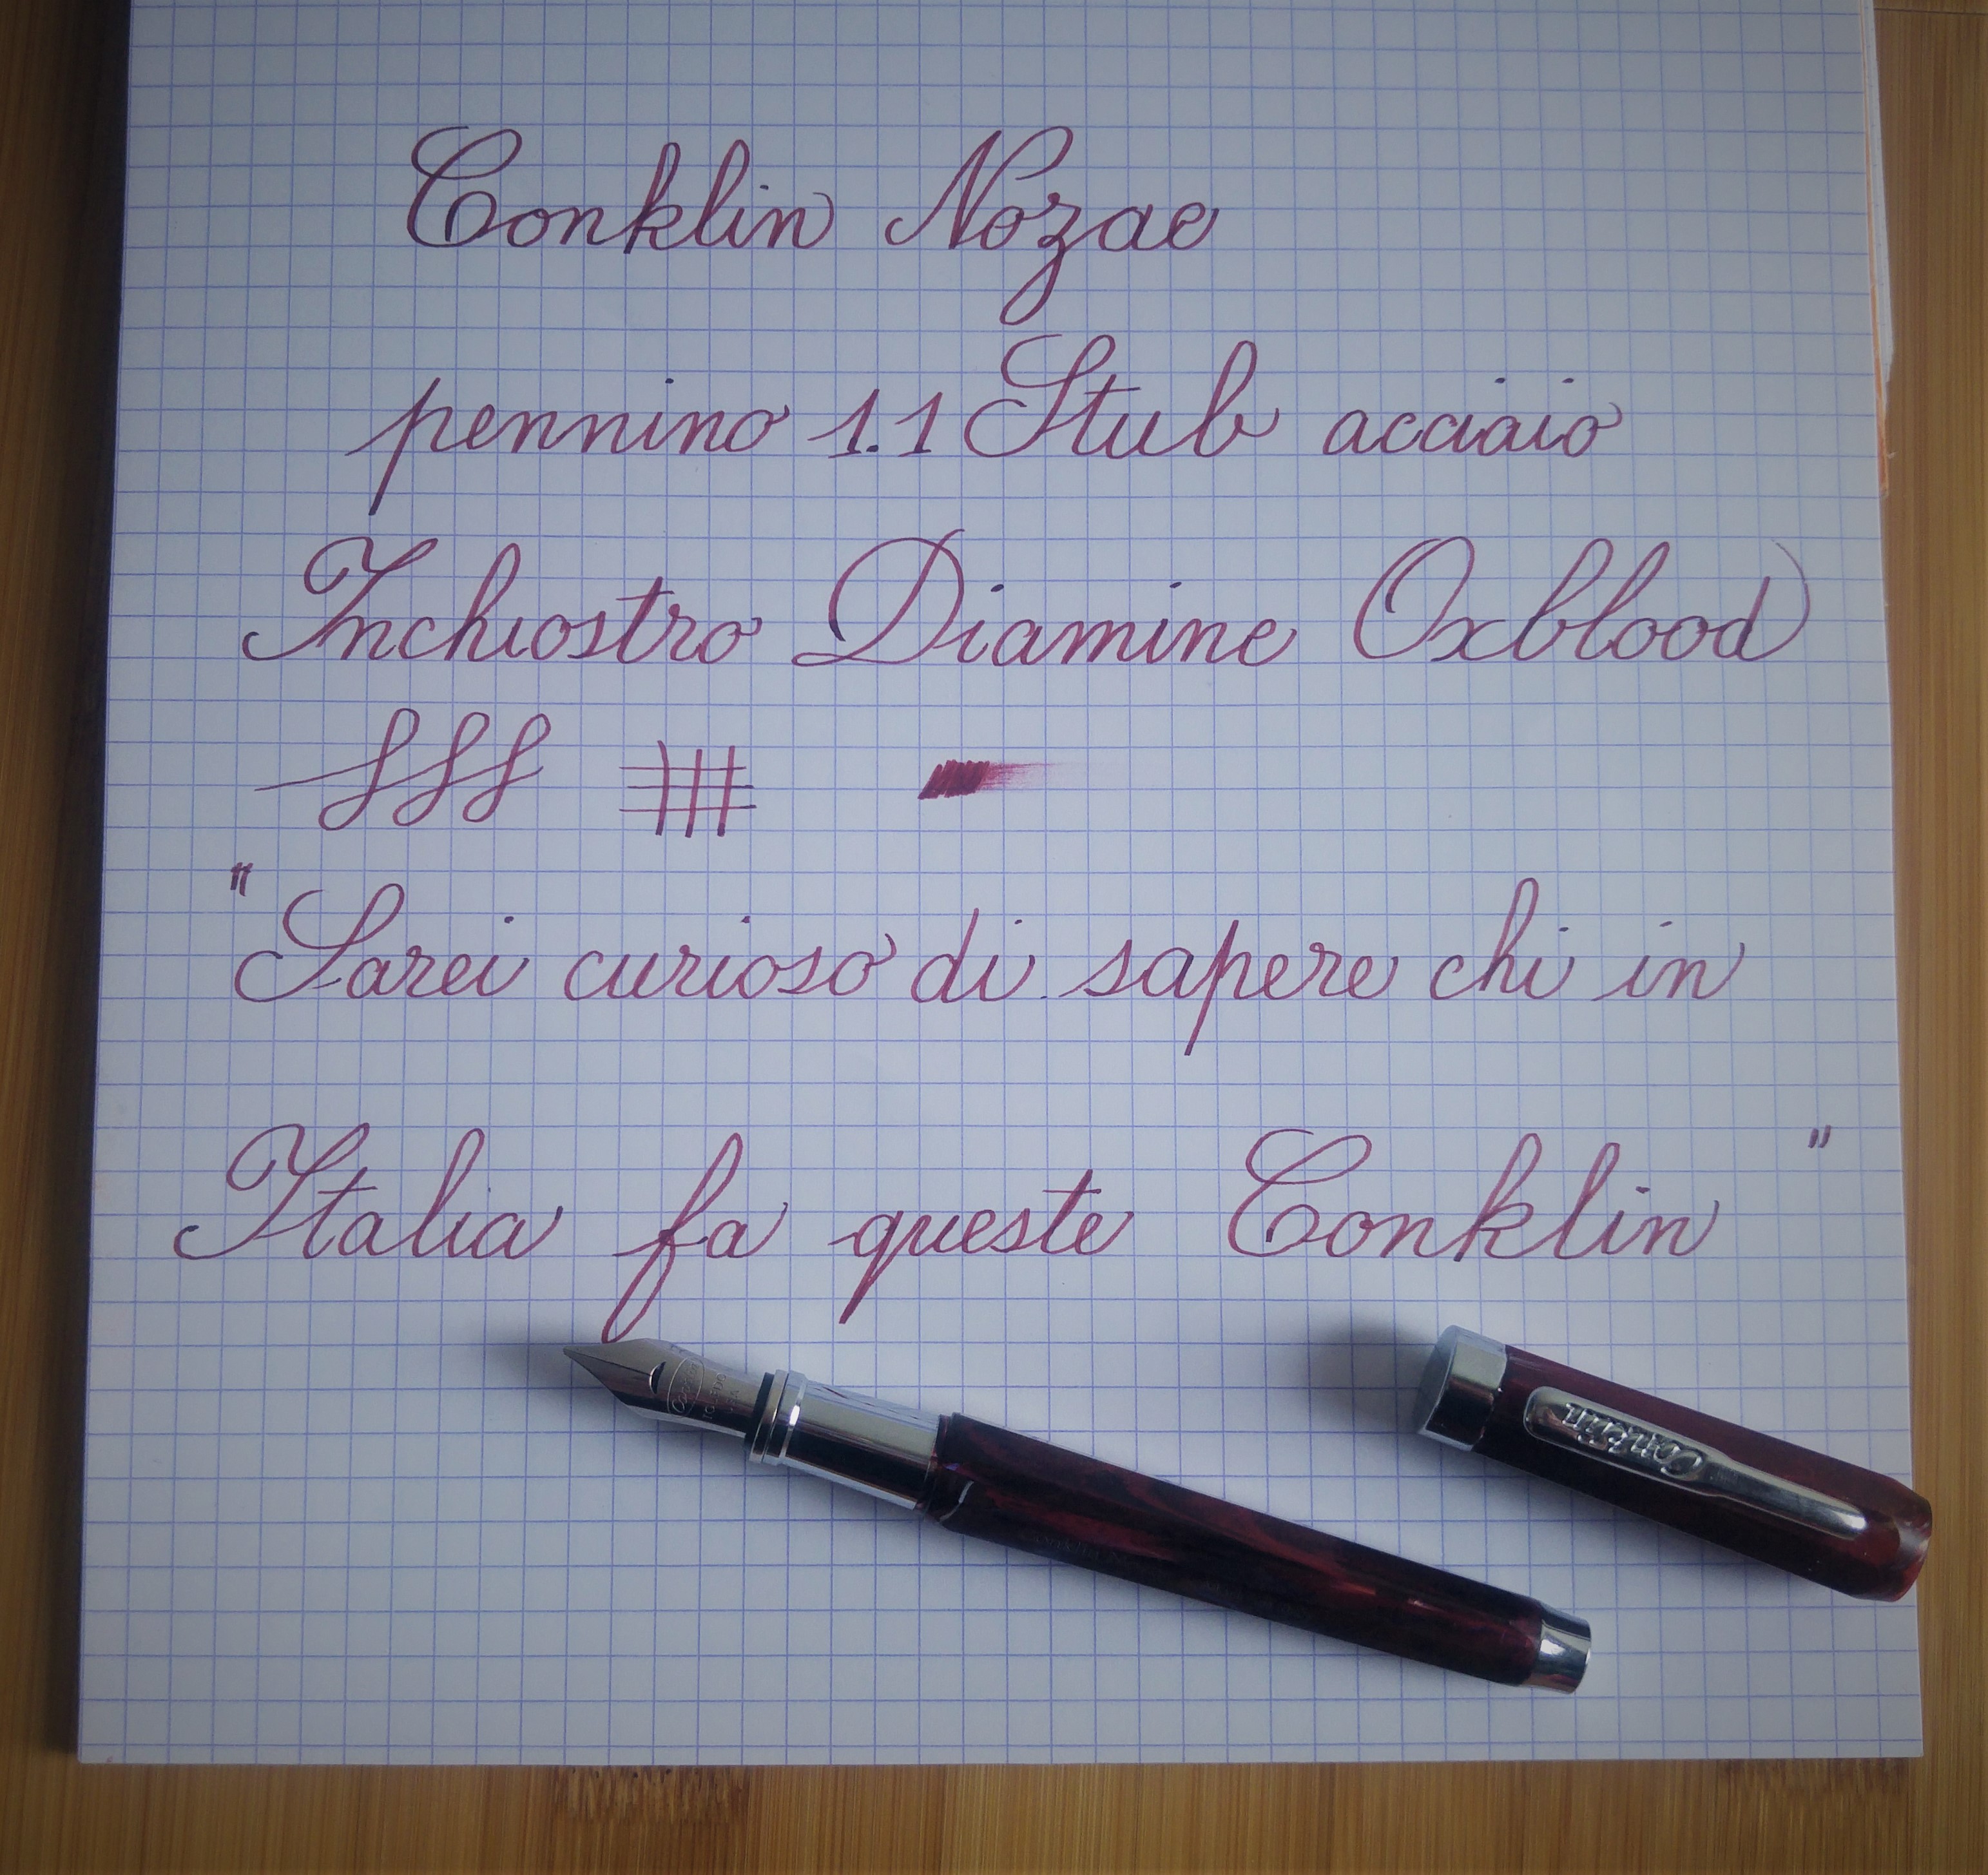 Conklin Nozac
pennino 1.1 Stub acciaio
Inchiostro Diamine Oxblood
"Sarei curioso di sapere chi in
Italia fa queste Conklin"
Conklin